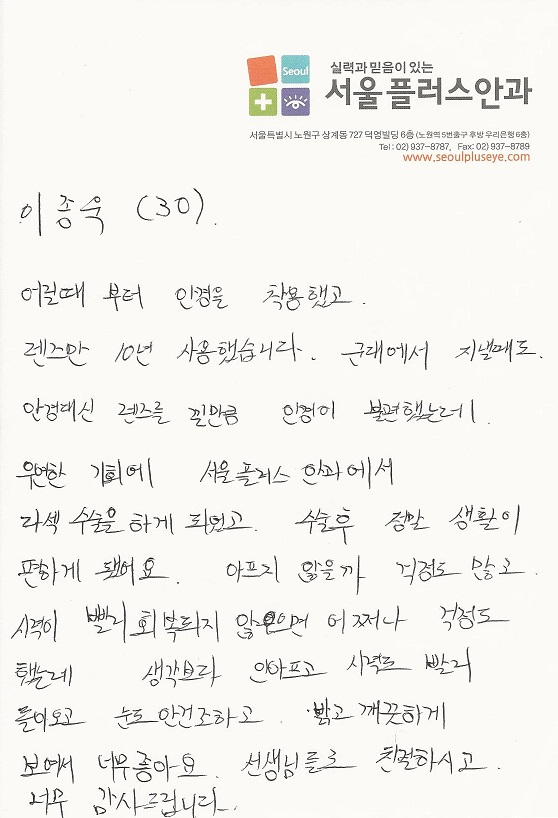 Seoul
실력과 믿음이 있는
서울플러스안과
서울특별시 노원구 상계동 727 덕영빌딩 6층 (노원역 5번출구 후방 우리은행 6층)
Tel : 02) 937-8787, Fax: 02) 937-8789
www.seoulpluseye.com
이종욱 (30).
어릴때 부터 안경을 착용했고.
렌즈만 10년 사용했습니다. 군대에서 지낼때도.
안경대신 렌즈를 낄만큼 안경이 불편했는데.
우연한 기회에 서울플러스 안과에서
라섹 수술을 하게 되었고. 수술후 정말 생활이
편하게 됐어요. 아프지 않을까 걱정도 많고.
시력이 빨리 회복되지 않으면 어쩌나 걱정도
했는데 생각보다 안아프고 시력도 빨리
돌아오고 눈도 안건조하고 밝고 깨끗하게
보여서 너무좋아요. 선생님들도 친절하시고.
너무 감사드립니다.